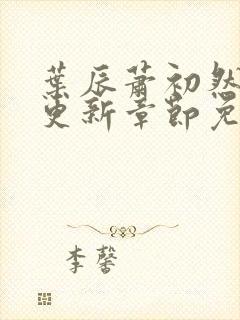 葉辰蕭初然
更新章節免
李馨